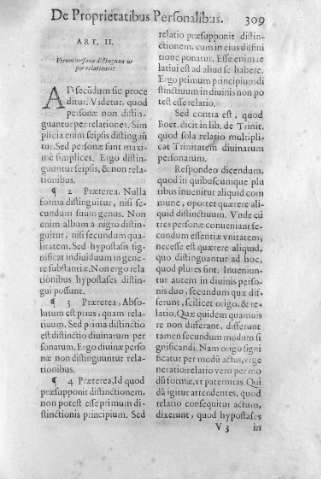 De Proprietatibus Personalibus. 309
ART. II.
Vtrum personæ distinguantur
per relationes.
AD secũdum sic proce
ditur. Videtur, quod
personæ non distin-
guantur per relationes. Sim
plicia enim seipsis distingũ
tur. Sed personæ sunt maxi
mè simplices. Ergo distin-
guuntur seipsis, & non re-
lationibus.
¶ 2 Præterea. Nulla
forma distinguitur, nisi se-
cundum suum genus. Non
enim album à nigro distin-
guitur, nisi secundum qua-
litatem. Sed hypostasis sig-
nificat indiuiduum in gene-
re substantiæ. Non ergo rela
tionibus hypostases distin-
gui possunt.
¶ 3 Præterea, Abso-
lutum est prius, quam rela-
tiuum. Sed prima distinctio
est distinctio diuinarum per
sonarum. Ergo diuinæ perso
næ non distinguuntur rela-
tionibus.
¶ 4 Præterea, Id quod
præsupponit distinctionem,
non potest esse primum di-
stinctionis principium. Sed
relatio præsupponit distin-
ctionem, cum in eius diffini
tione ponatur. Esse enim re
latiui est ad aliud se habere.
Ergo primum principiũ di
stinctiuum in diuinis non po
test esse relatio.
Sed contra est, quod
Boet. dicit in lib. de Trinit.
quod sola relatio multipli-
cat Trinitatem diuinarum
personarum.
Respondeo dicendum,
quod in quibuscunque plu
ribus inuenitur aliquid com
mune, oportet quærere ali-
quid distinctiuum. Vnde cũ
tres personæ conueniant se-
cundum essentiæ vnitatem,
necesse est quærere aliquid,
quo distinguantur ad hoc,
quod plures sint. Inueniun-
tur autem in diuinis perso-
nis duo, secundum quæ dif-
ferunt, scilicet origo, & re-
latio. Quæ quidem quamuis
re non differant, differunt
tamen secundum modum si
gnificandi. Nam origo signi
ficatur per modũ actus, vt ge
neratio: relatio verò per mo
dũ formæ, vt paternitas. Qui
dã igitur attendentes, quod
relatio consequitur actum,
dixerunt, quod hypostases
V 3 in